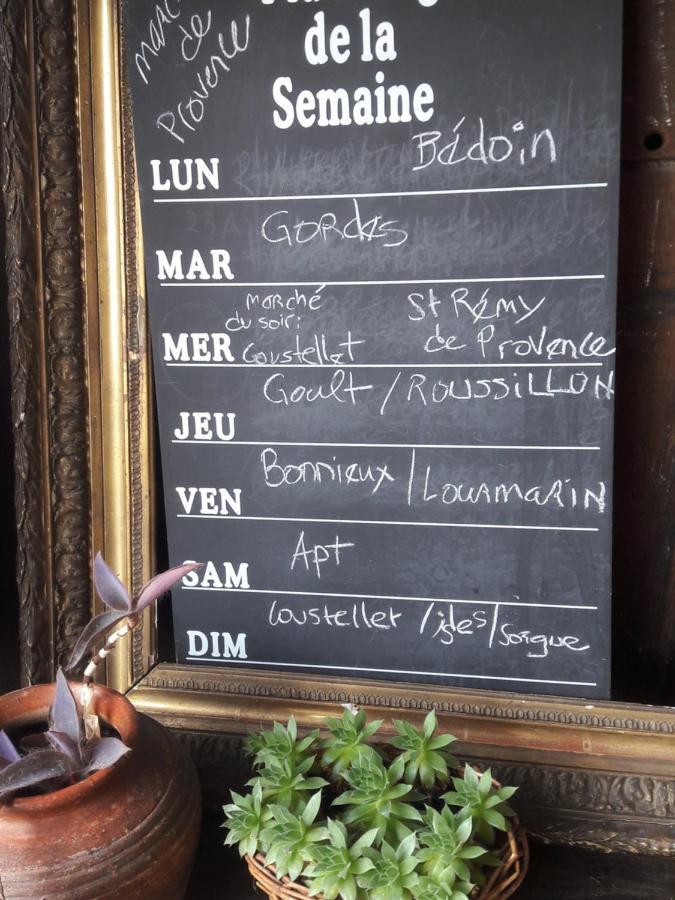 marché
de
Provence
de la
Semaine
LUN Bédoin
MAR Gordes
MER marché du soir: Coustellet St Rémy de Provence
JEU Goult / ROUSSILLON
VEN Bonnieux / Lourmarin
SAM Apt
DIM Coustellet / isles / Sorgue